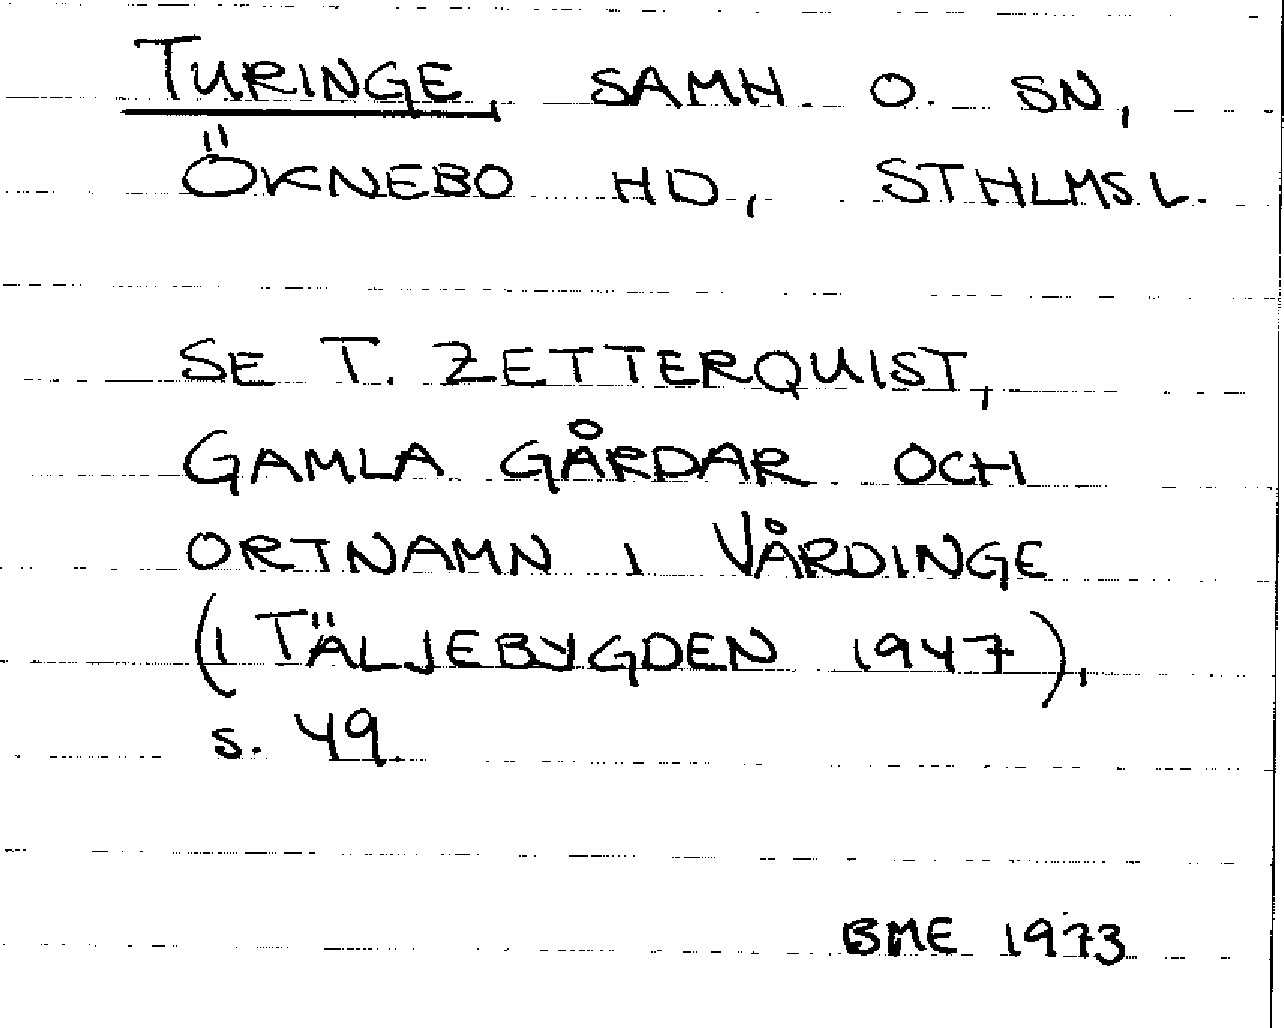 TURINGE, SAMH. O. SN,
ÖKNEBO HD, STHLMS L.
SE T. ZETTERQUIST,
GAMLA GÅRDAR OCH
ORTNAMN I VÅRDINGE
(I TÄLJEBYGDEN 1947),
s. 49.
BME 1973